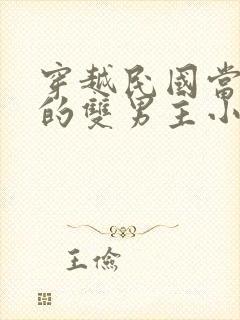 穿越民國當
的雙男主小
王儉